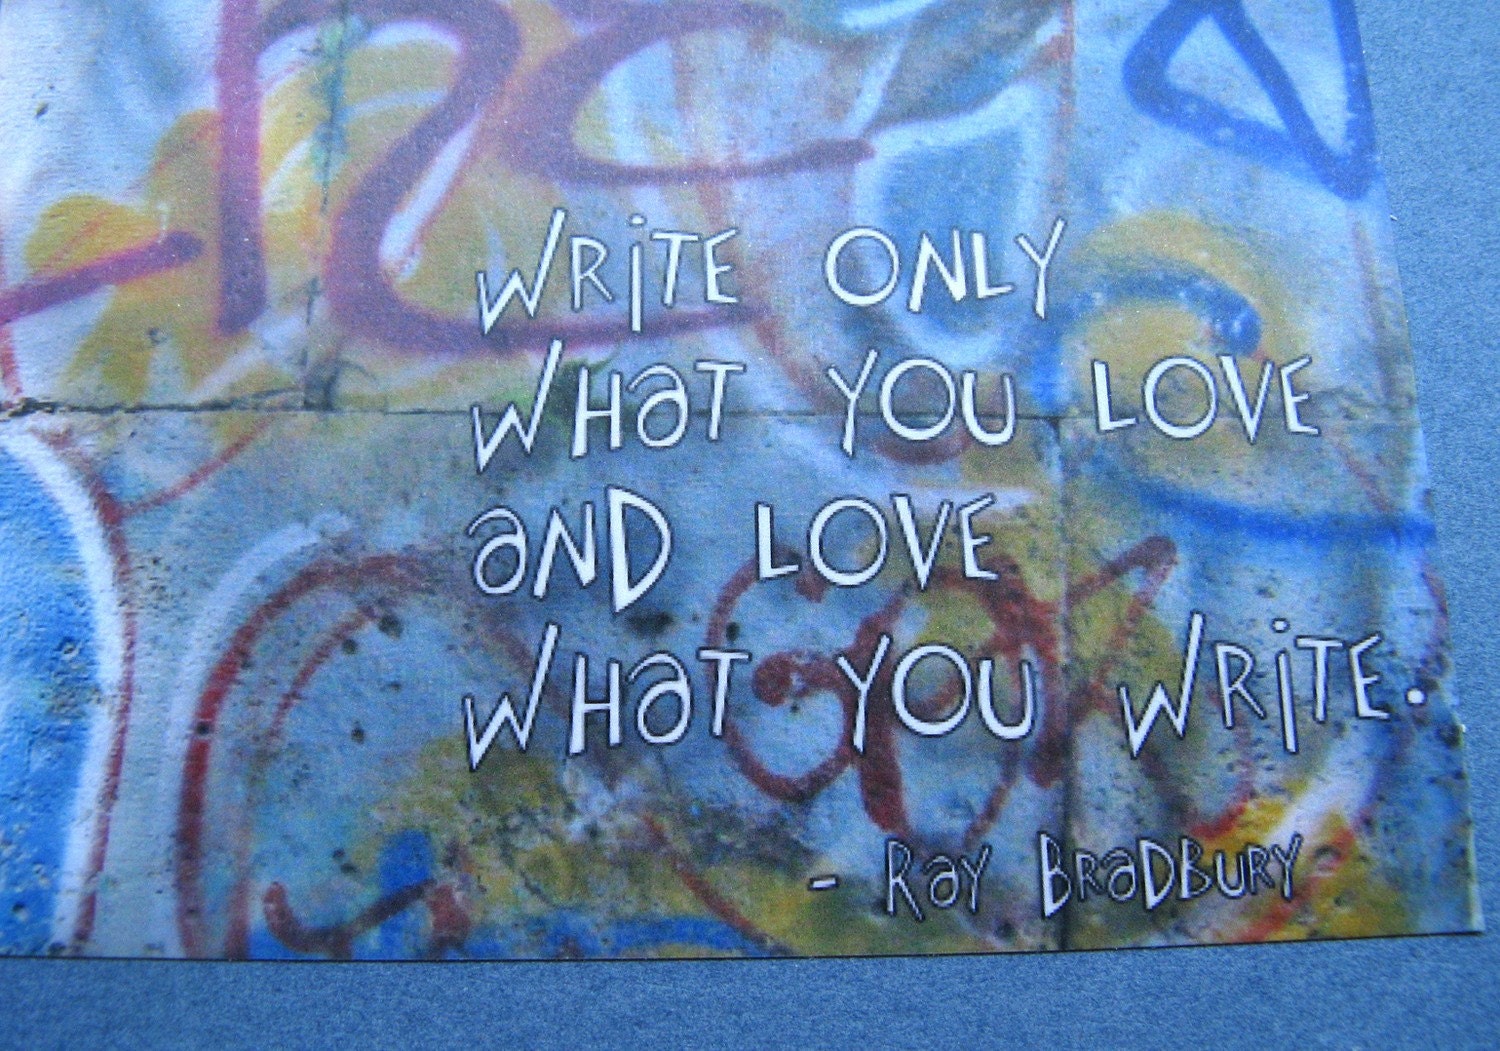 WRiTE ONLY
WHaT YOU LOVE
aND LOVE
WHaT YOU WRiTE.
- RaY BRaDBURY